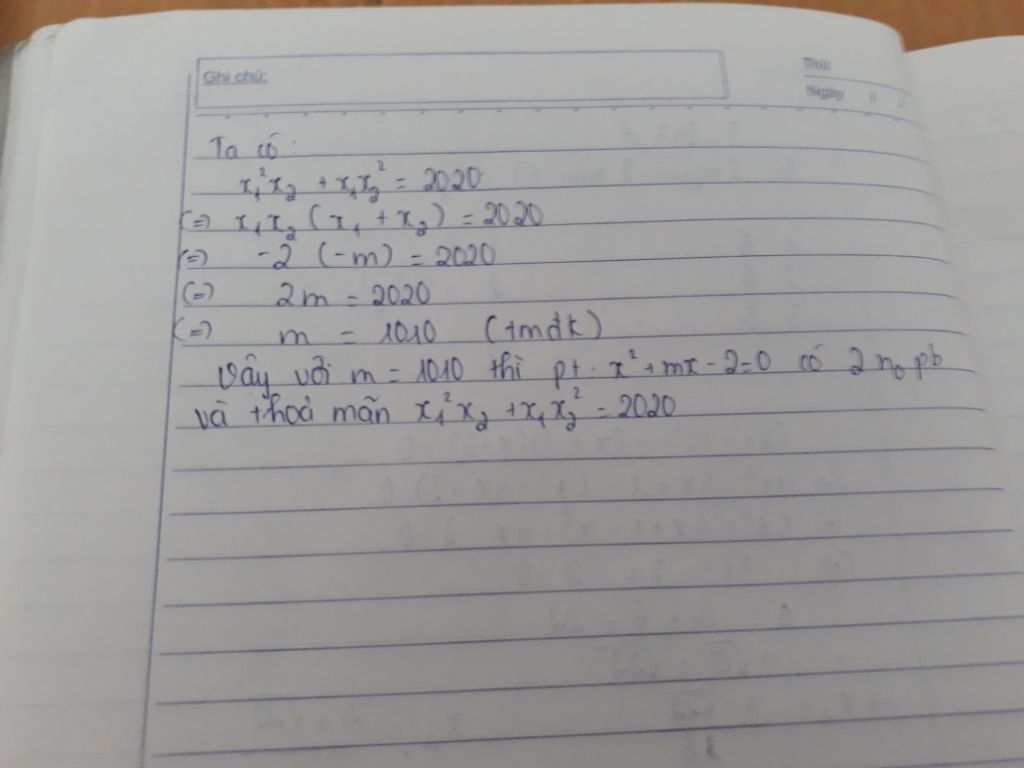 Ghi chú:
Thứ:
Ngày
Ta có:
x₁²x₂ + x₁x₂² = 2020
(=) x₁x₂ (x₁ + x₂) = 2020
(=) -2 (-m) = 2020
(=) 2m = 2020
(=) m = 1010 (tmđk)
Vậy với m = 1010 thì pt: x² + mx - 2 = 0 có 2 n₀ pb
và thoả mãn x₁²x₂ + x₁x₂² = 2020